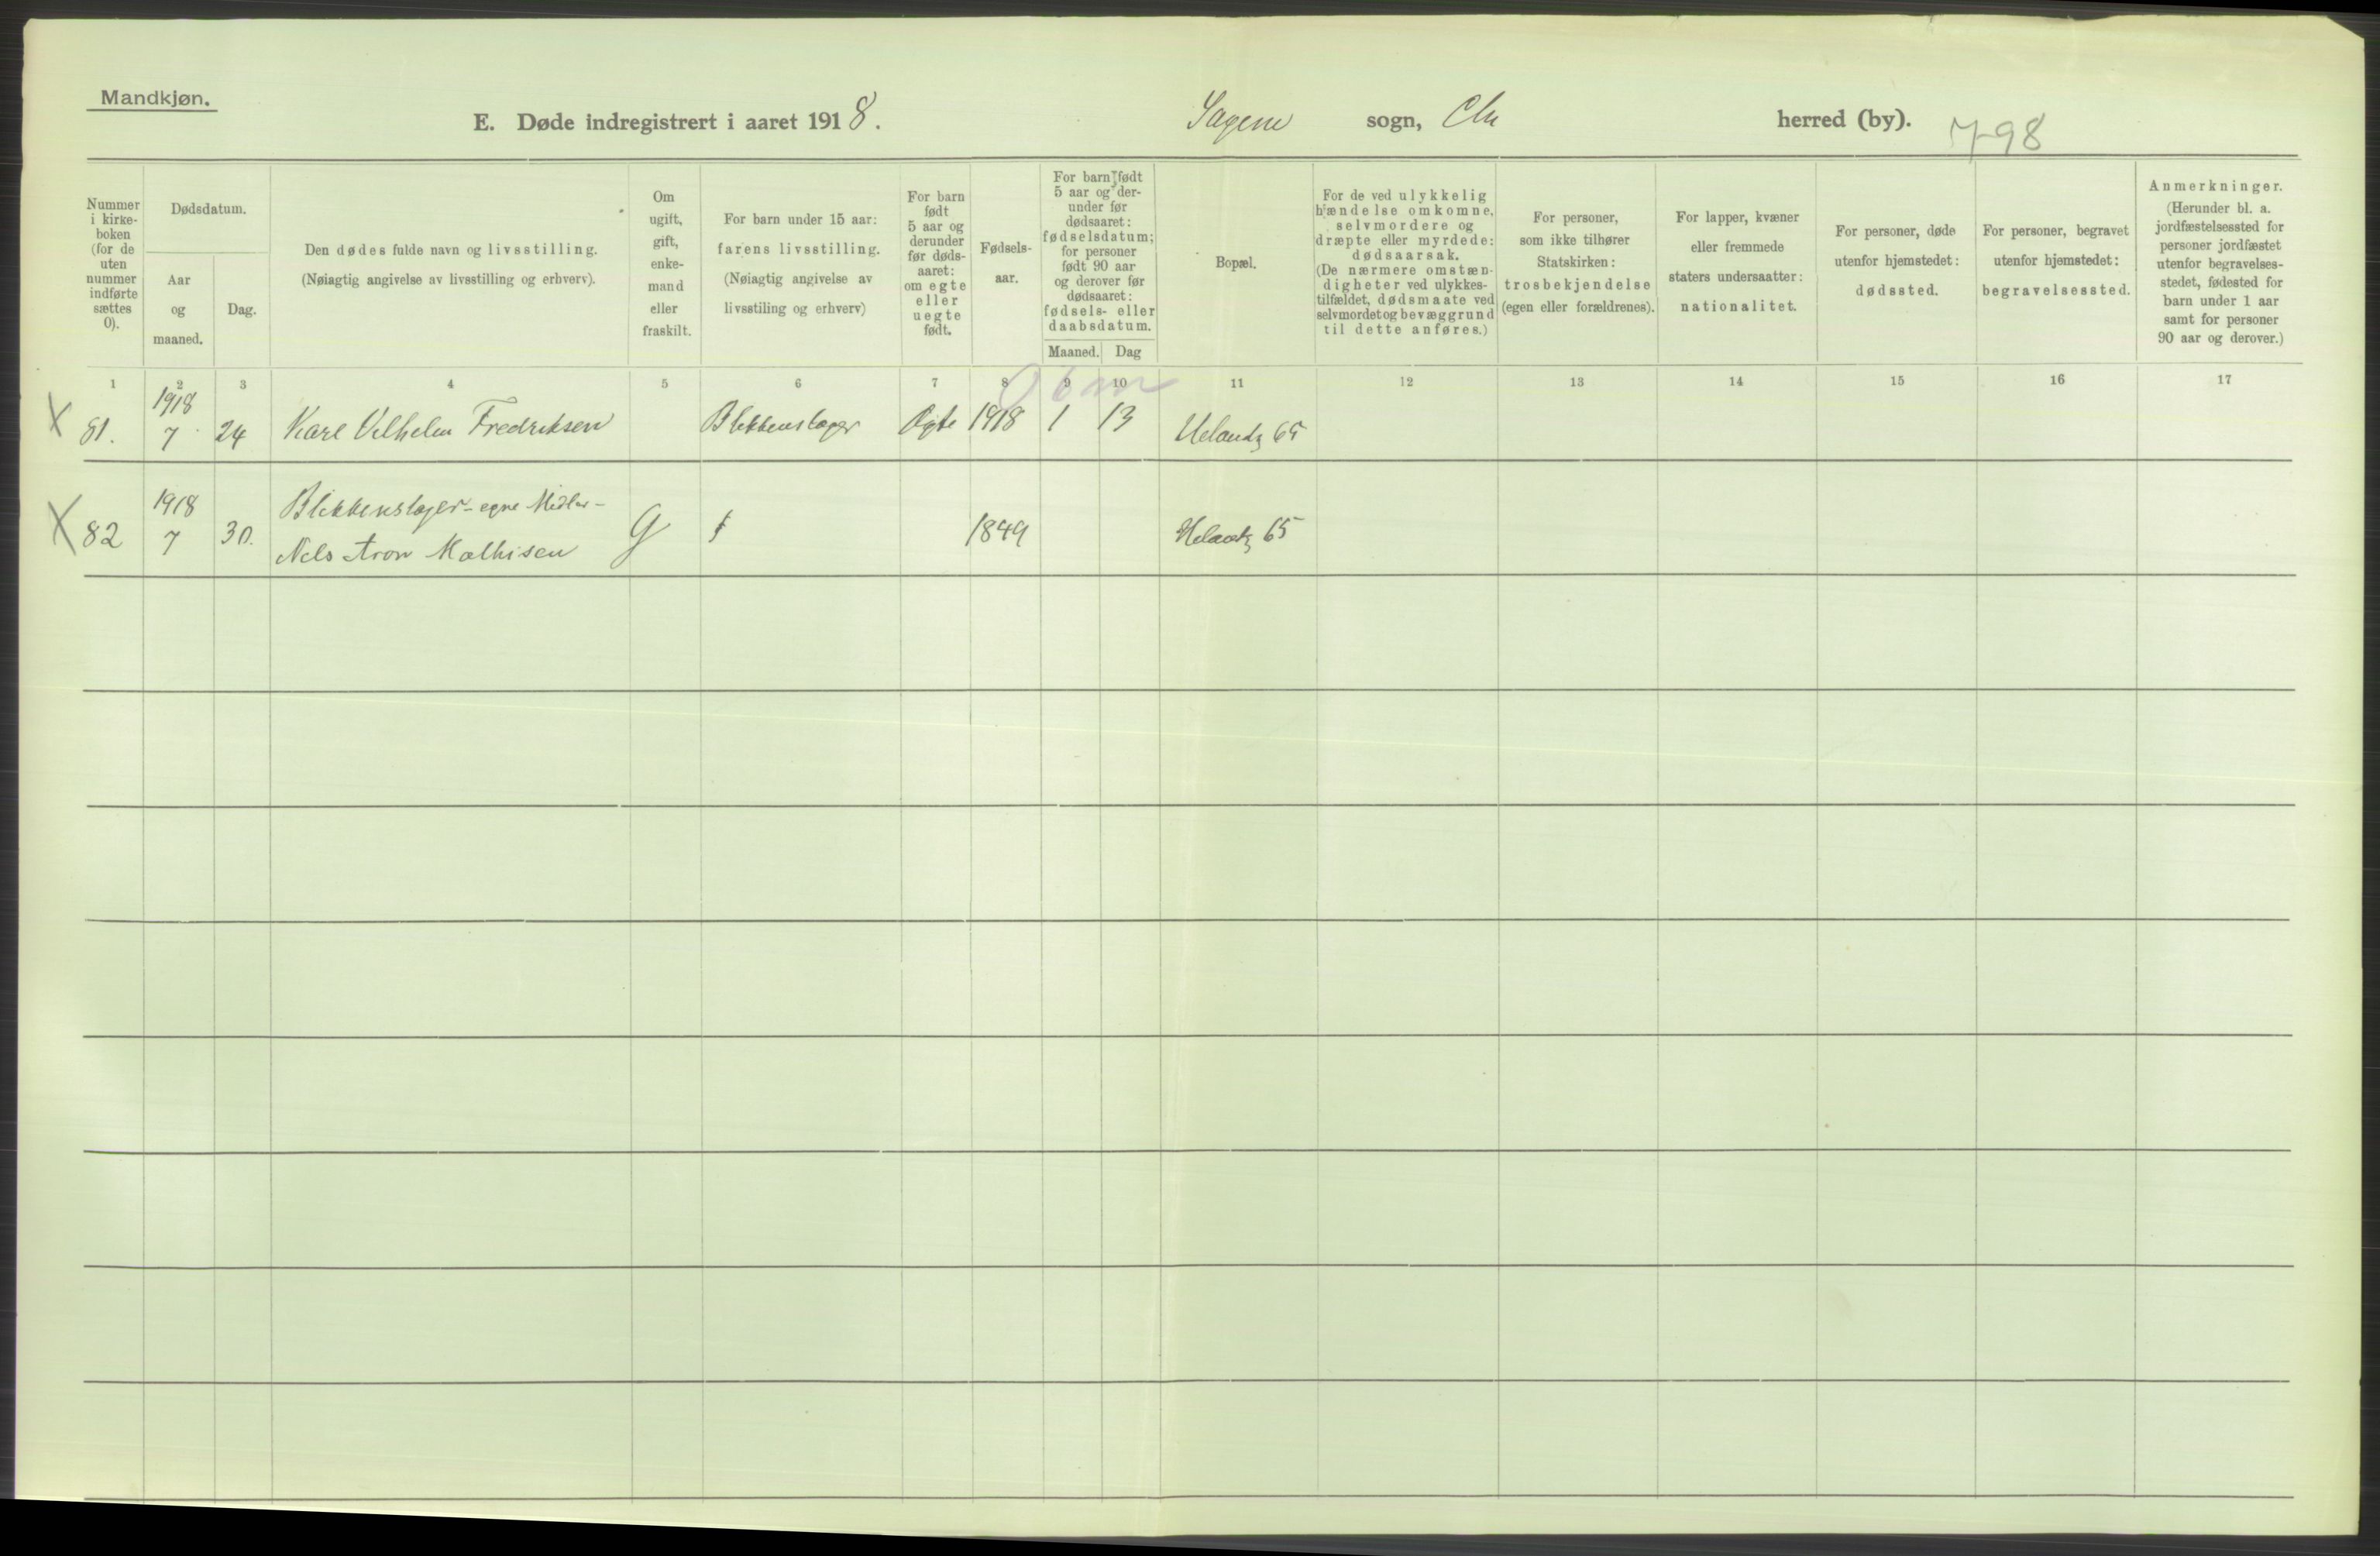 Mandkjøn.
E. Døde indregistrert i aaret 1918. Sagene sogn, Chr herred (by). 7-98
Nummer
i kirke-
boken
(for de
uten
nummer
indførte
sættes
0).
Dødsdatum.
Aar
og
maaned.
Dag.
Den dødes fulde navn og livsstilling.
(Nøiagtig angivelse av livsstilling og erhverv).
Om
ugift,
gift,
enke-
mand
eller
fraskilt.
For barn under 15 aar:
farens livsstilling.
(Nøiagtig angivelse av
livsstiling og erhverv)
For barn
født
5 aar og
derunder
før døds-
aaret:
om egte
eller
uegte
født.
Fødsels-
aar.
For barn født
5 aar og der-
under før
dødsaaret:
fødselsdatum;
for personer
født 90 aar
og derover før
dødsaaret:
fødsels- eller
daabsdatum.
Maaned. Dag
Bopæl.
For de ved ulykkelig
hændelse omkomne,
selvmordere og
dræpte eller myrdede:
dødsaarsak.
(De nærmere omstæn-
digheter ved ulykkes-
tilfældet, dødsmaate ved
selvmordet og bevæggrund
til dette anføres.)
For personer,
som ikke tilhører
Statskirken:
trosbekjendelse
(egen eller forældrenes).
For lapper, kvæner
eller fremmede
staters undersaatter:
nationalitet.
For personer, døde
utenfor hjemstedet:
dødssted.
For personer, begravet
utenfor hjemstedet:
begravelsessted.
Anmerkninger.
(Herunder bl. a.
jordfæstelsessted for
personer jordfæstet
utenfor begravelses-
stedet, fødested for
barn under 1 aar
samt for personer
90 aar og derover.)
1 2 3 4 5 6 7 8 9 10 11 12 13 14 15 16 17
X 81. 1918 7 24 Karl Vilhelm Fredriksen Blikkenslager Egte 1918 1 13 Uelandsg 65
X 82 1918 7 30. Blikkenslager - egne Midler -
Nils Aron Mathisen G 1849 Uelandsg 65